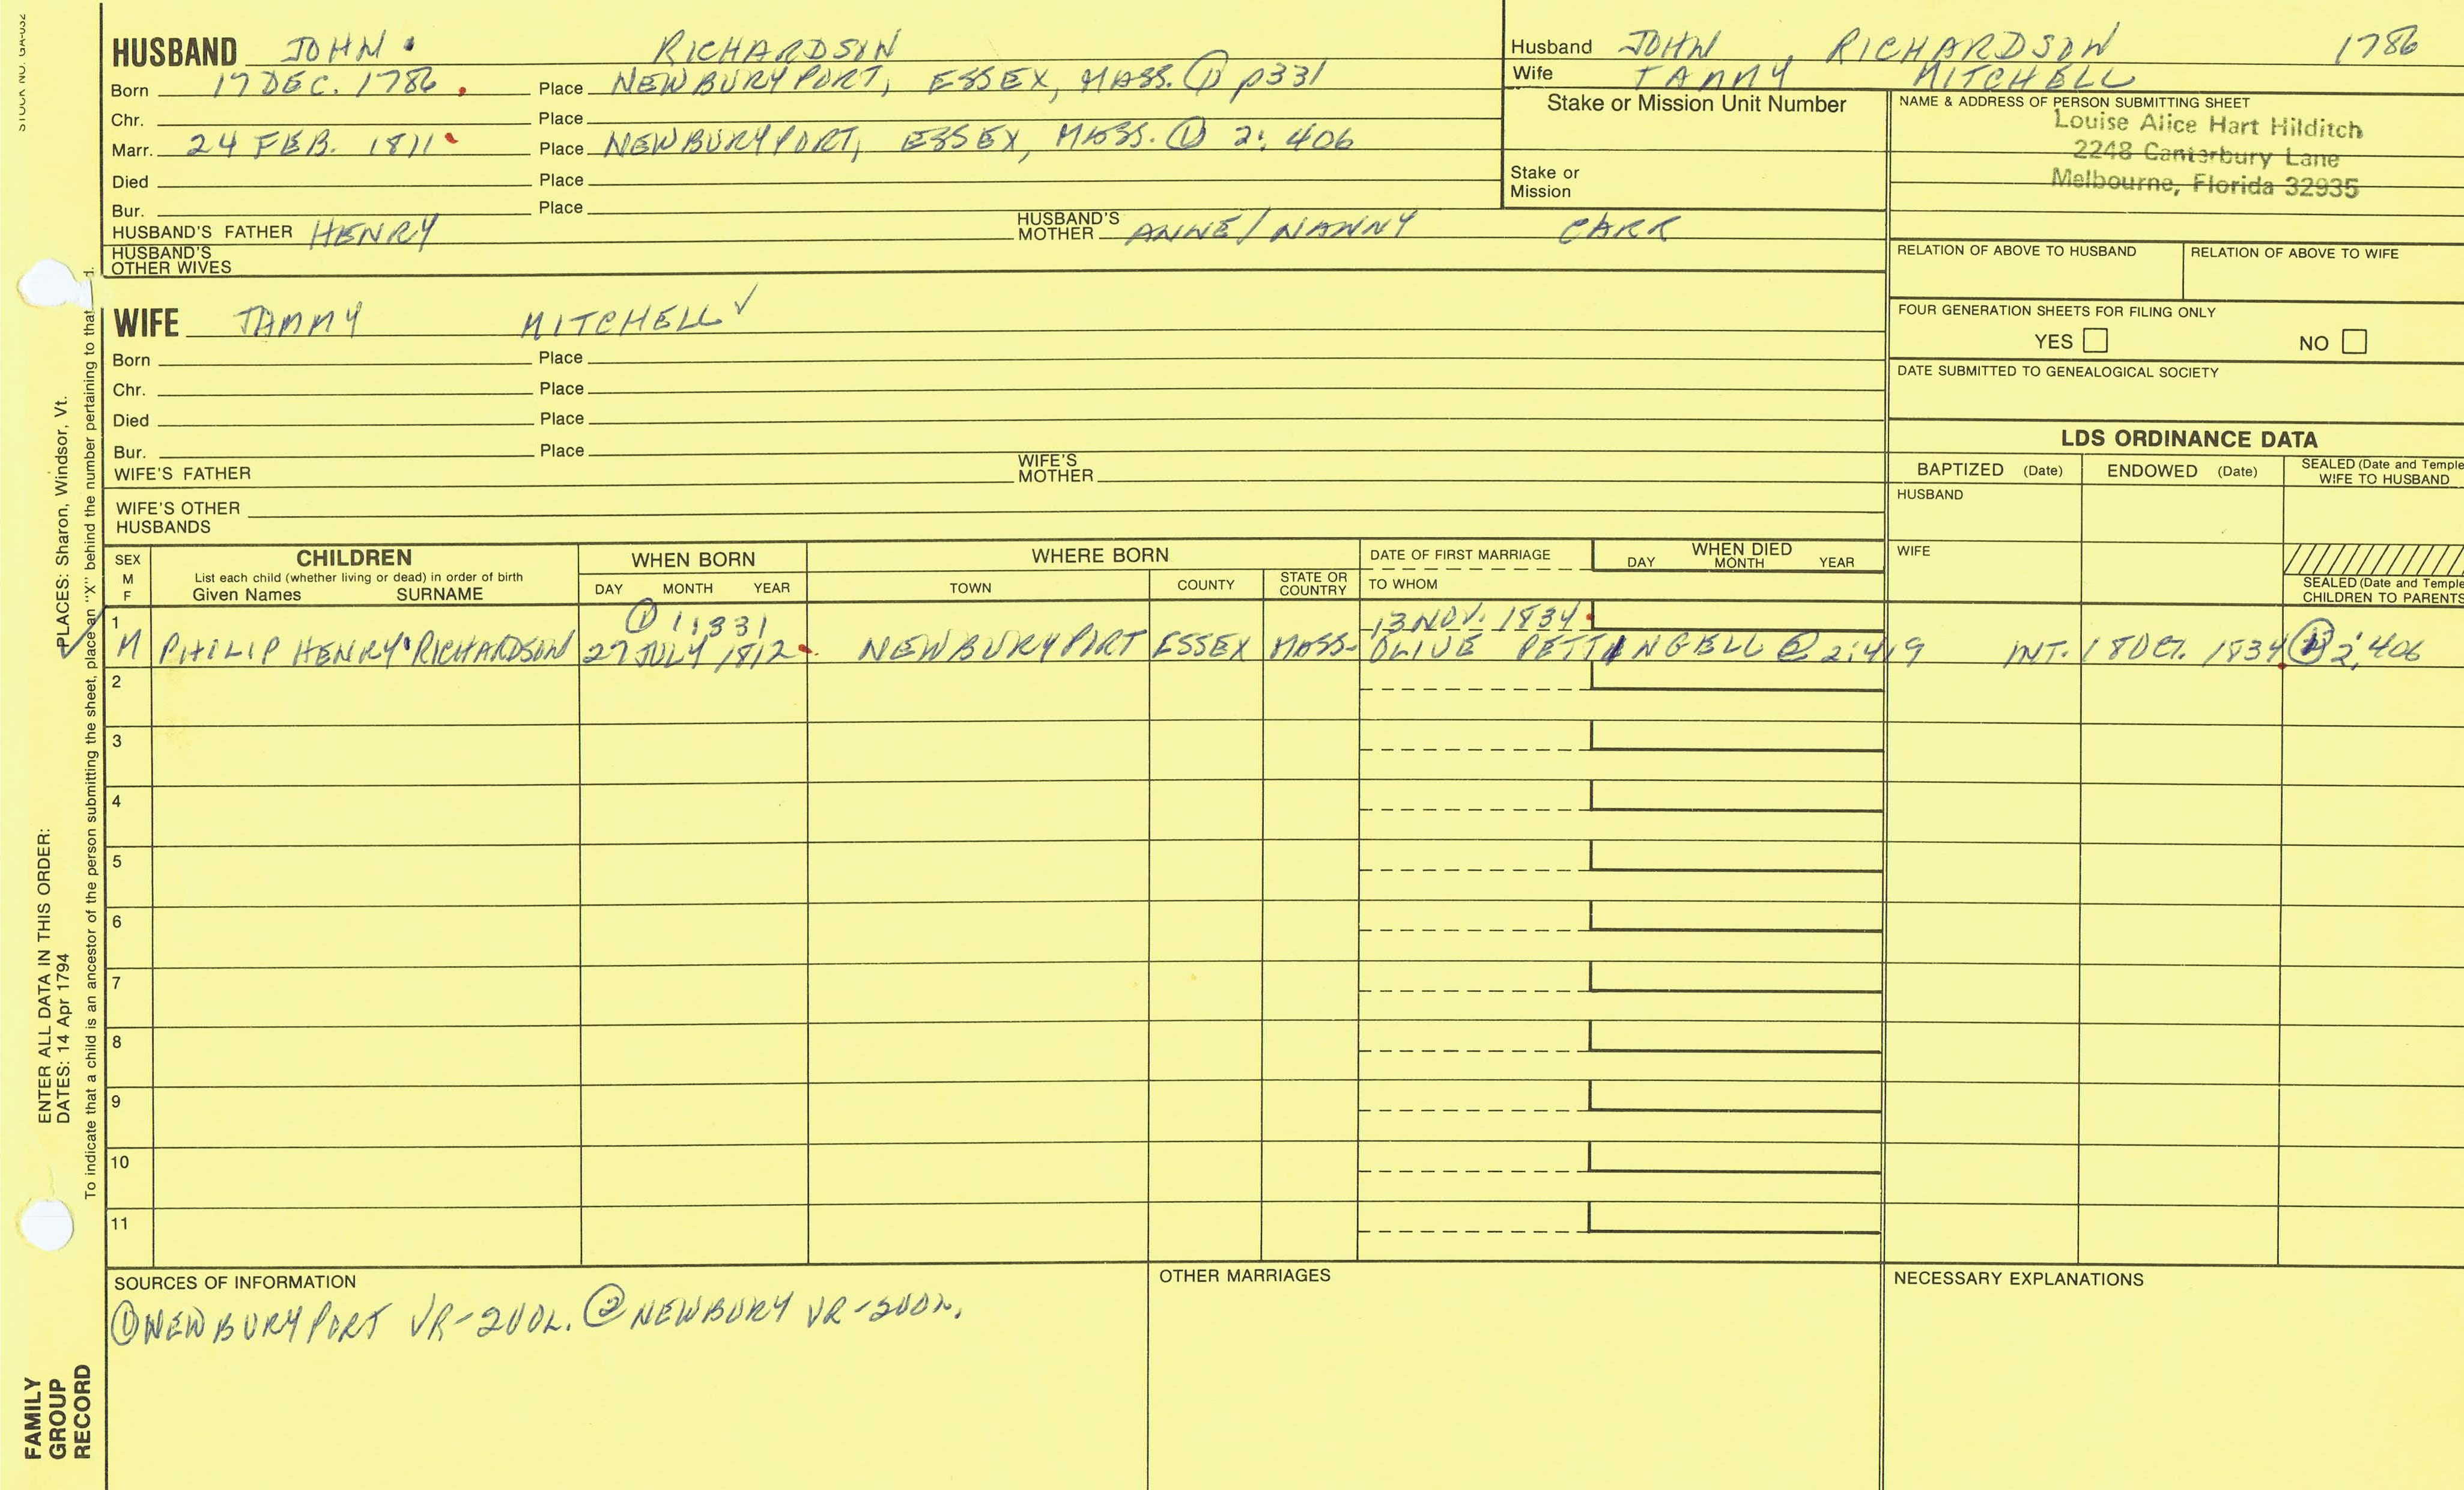 STOCK NO. GA-032
HUSBAND JOHN RICHARDSON
Born 17 DEC. 1786. Place NEWBURYPORT, ESSEX, MASS. ① p331
Chr. Place
Marr. 24 FEB. 1811 Place NEWBURYPORT, ESSEX, MASS. ① 2:406
Died Place
Bur. Place
HUSBAND'S FATHER HENRY HUSBAND'S MOTHER ANNE/NANNY CARR
HUSBAND'S OTHER WIVES
Husband JOHN, RICHARDSON 1786
Wife TAMMY MITCHELL
Stake or Mission Unit Number
Stake or Mission
NAME & ADDRESS OF PERSON SUBMITTING SHEET
Louise Alice Hart Hilditch
2248 Canterbury Lane
Melbourne, Florida 32935
RELATION OF ABOVE TO HUSBAND RELATION OF ABOVE TO WIFE
FOUR GENERATION SHEETS FOR FILING ONLY
YES NO
DATE SUBMITTED TO GENEALOGICAL SOCIETY
WIFE TAMMY MITCHELL ✓
Born Place
Chr. Place
Died Place
Bur. Place
WIFE'S FATHER WIFE'S MOTHER
WIFE'S OTHER HUSBANDS
LDS ORDINANCE DATA
BAPTIZED (Date) ENDOWED (Date) SEALED (Date and Temple
WIFE TO HUSBAND
HUSBAND
WIFE
SEALED (Date and Temple
CHILDREN TO PARENTS
SEX M F
CHILDREN
List each child (whether living or dead) in order of birth
Given Names SURNAME
WHEN BORN
DAY MONTH YEAR
WHERE BORN
TOWN COUNTY STATE OR COUNTRY
DATE OF FIRST MARRIAGE
TO WHOM
WHEN DIED
DAY MONTH YEAR
1 ① 1:331 13 NOV. 1834.
✓ M PHILIP HENRY RICHARDSON 27 JULY 1812. NEWBURYPORT ESSEX MASS. OLIVE PETTINGELL ② 2:419 INT. 18 OCT. 1834 2:406
2
3
4
5
6
7
8
9
10
11
SOURCES OF INFORMATION
① NEWBURYPORT VR-2VOL. ② NEWBURY VR-2VOL.
OTHER MARRIAGES
NECESSARY EXPLANATIONS
ENTER ALL DATA IN THIS ORDER:
DATES: 14 Apr 1794 PLACES: Sharon, Windsor, Vt.
To indicate that a child is an ancestor of the person submitting the sheet, place an "X" behind the number pertaining to that
FAMILY
GROUP
RECORD